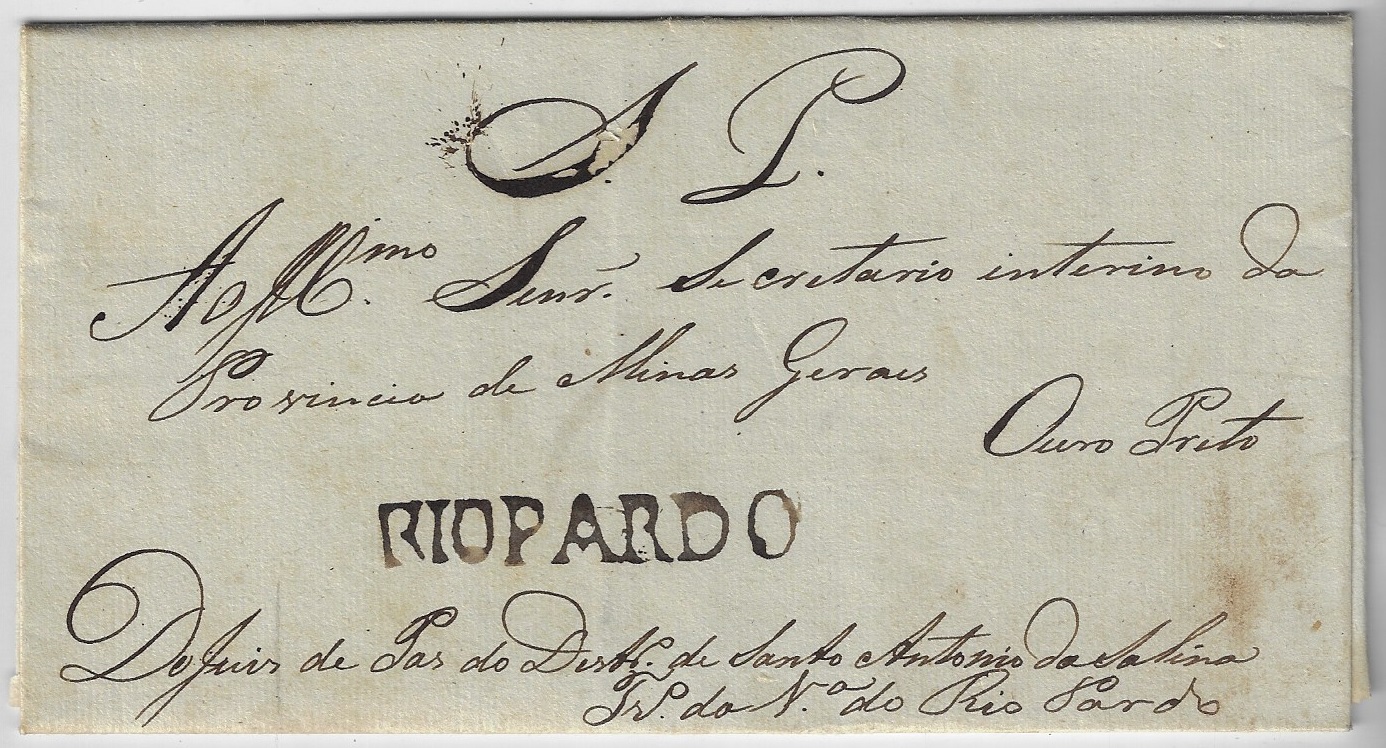 S. P.
Ao Illmo. Senr. Secretario interino da
Provincia de Minas Geraes
Ouro Preto
RIOPARDO
Do Juis de Pas do Destro. de Santo Antonio da Salina
Tr.º da V.ª do Rio Pardo